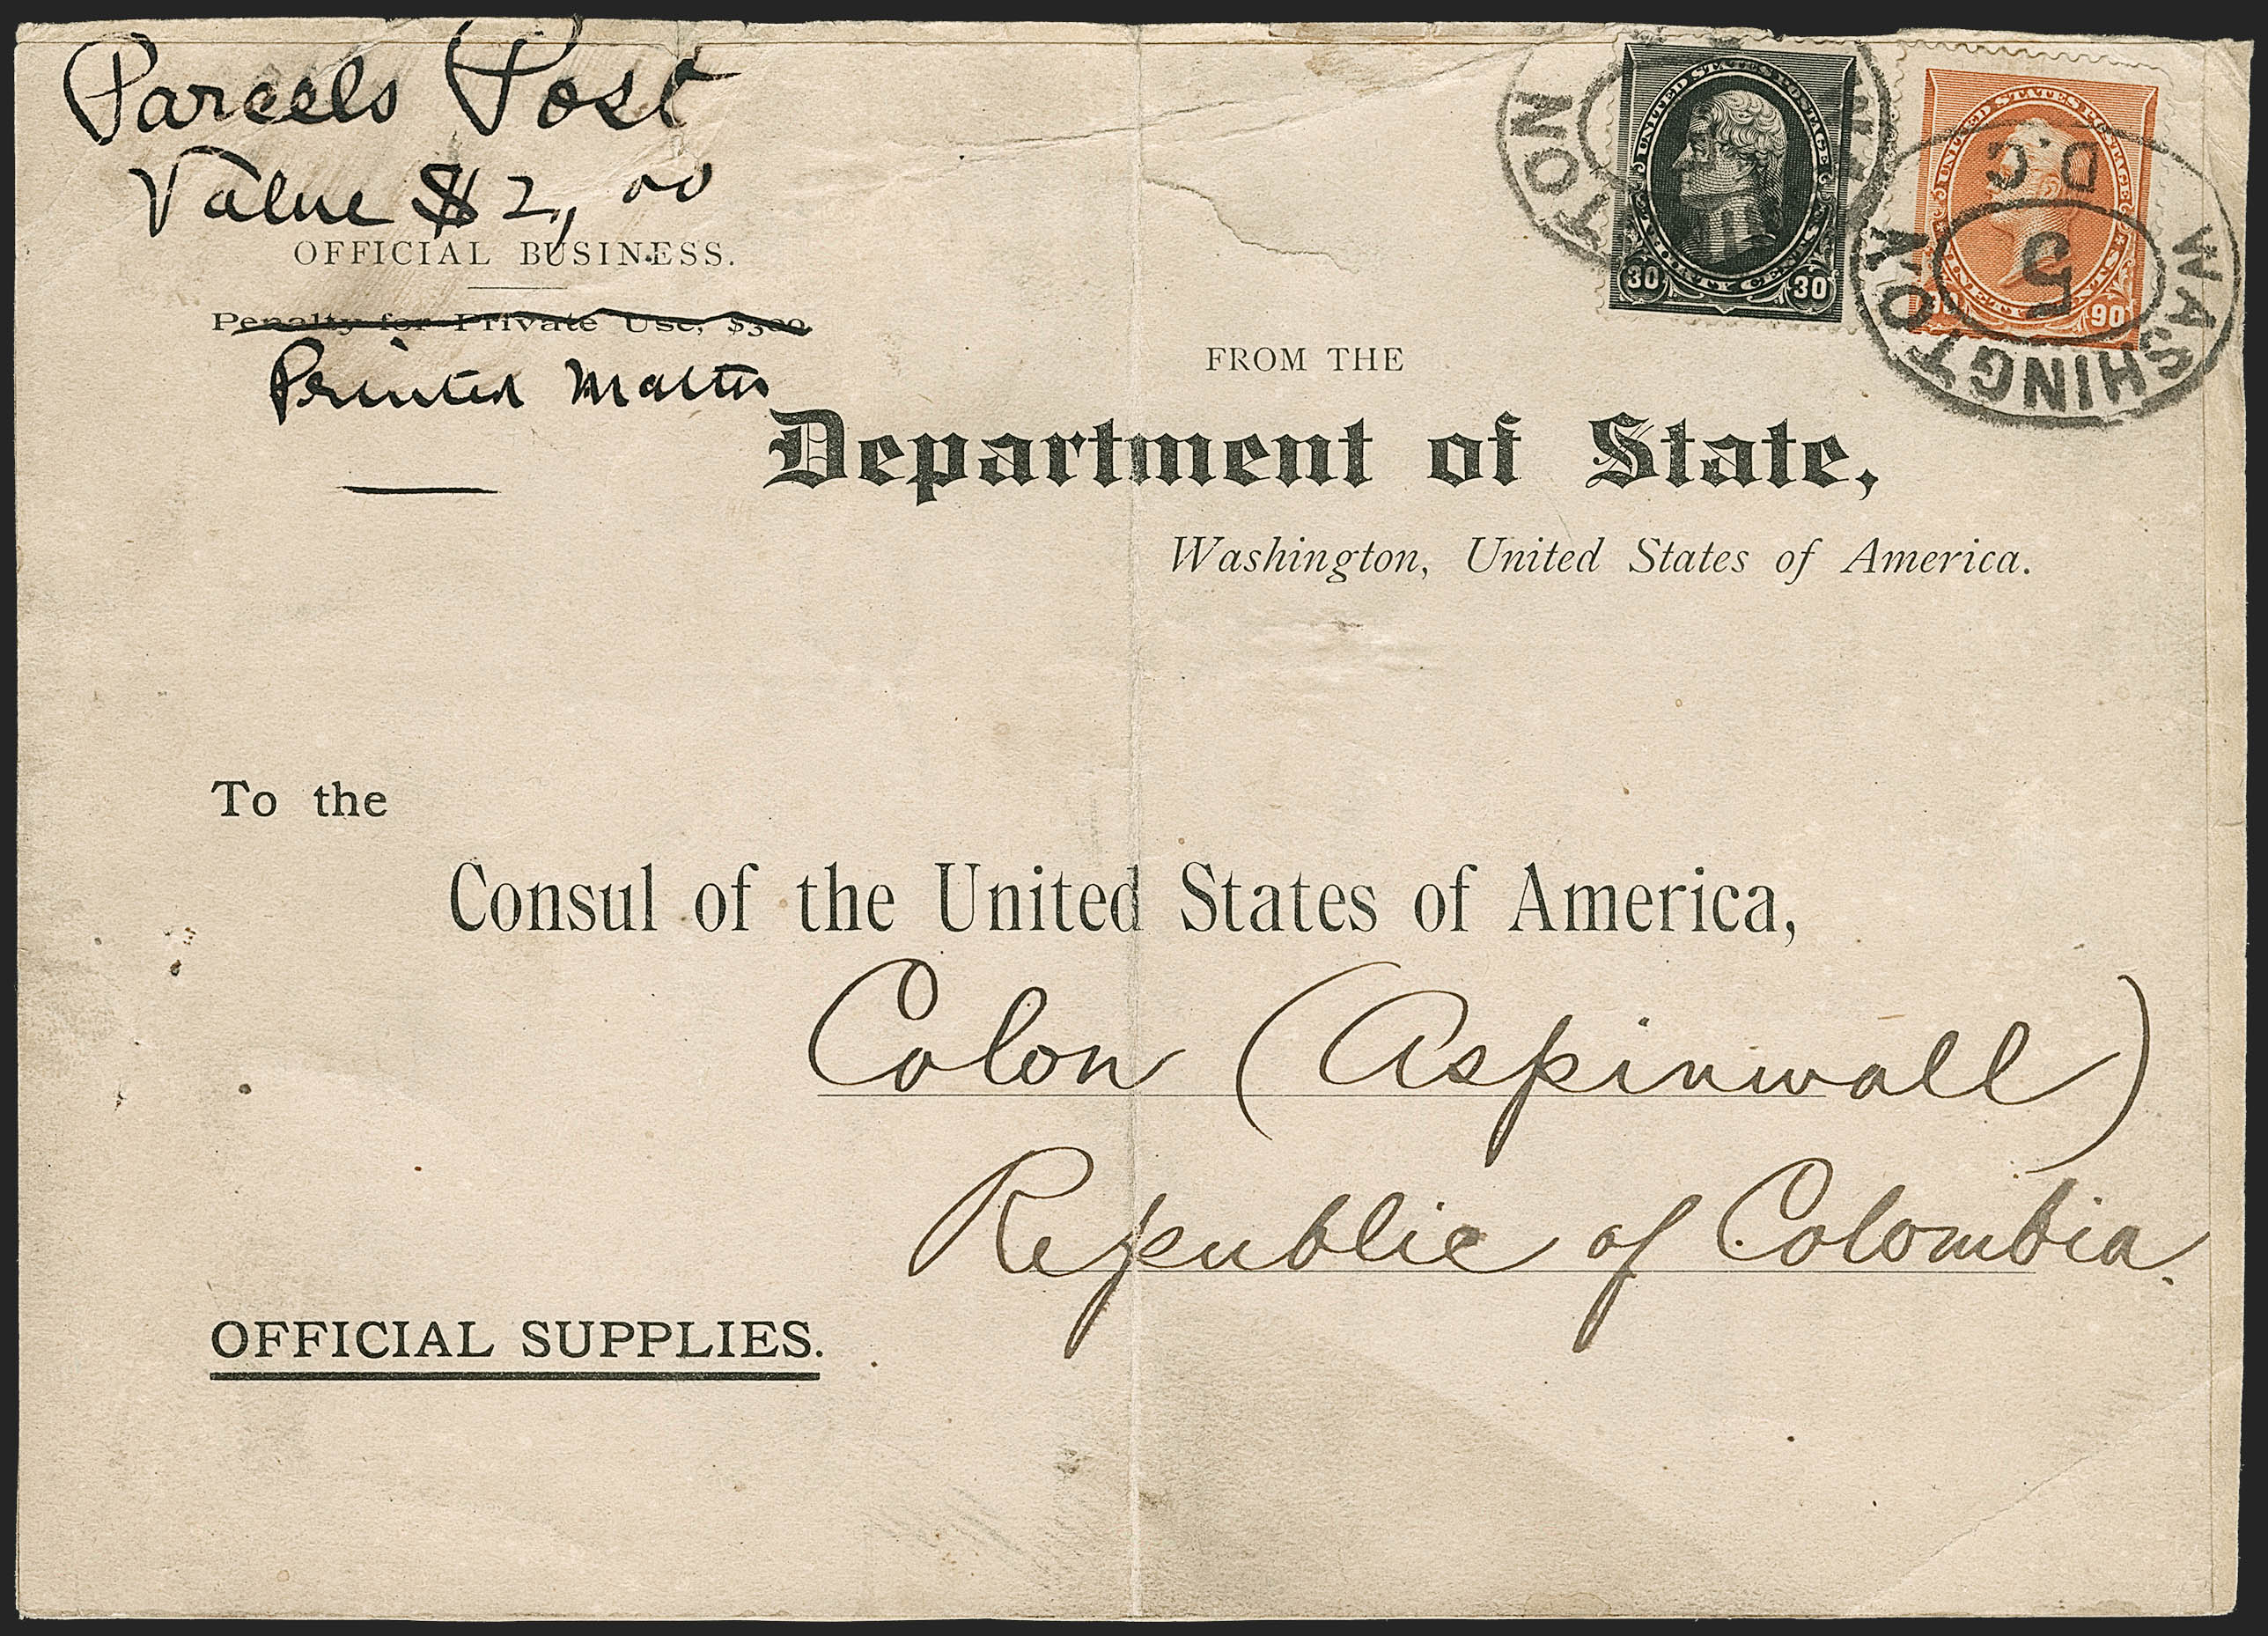 Parcels Post
Value $2,00
OFFICIAL BUSINESS.
Penalty for Private Use, $300
Printed Matter
UNITED STATES POSTAGE
30 THIRTY CENTS 30
TON WA
UNITED STATES POSTAGE
90 NINETY CENTS 90
WASHINGTON
D.C.
5
FROM THE
Department of State,
Washington, United States of America.
To the
Consul of the United States of America,
Colon (Aspinwall)
Republic of Colombia.
OFFICIAL SUPPLIES.